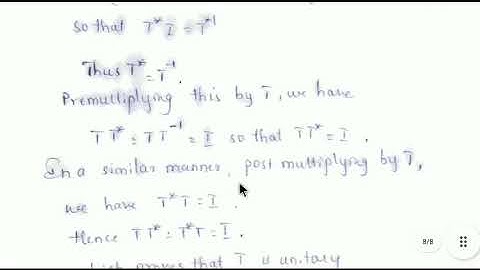 so that T* I = T⁻¹
Thus T* = T⁻¹.
Premultiplying this by T, we have
T T* = T T⁻¹ = I so that TT* = I.
In a similar manner, post multiplying by T,
we have T* T = I.
Hence TT* = T*T = I.
which proves that T is unitary
8/8